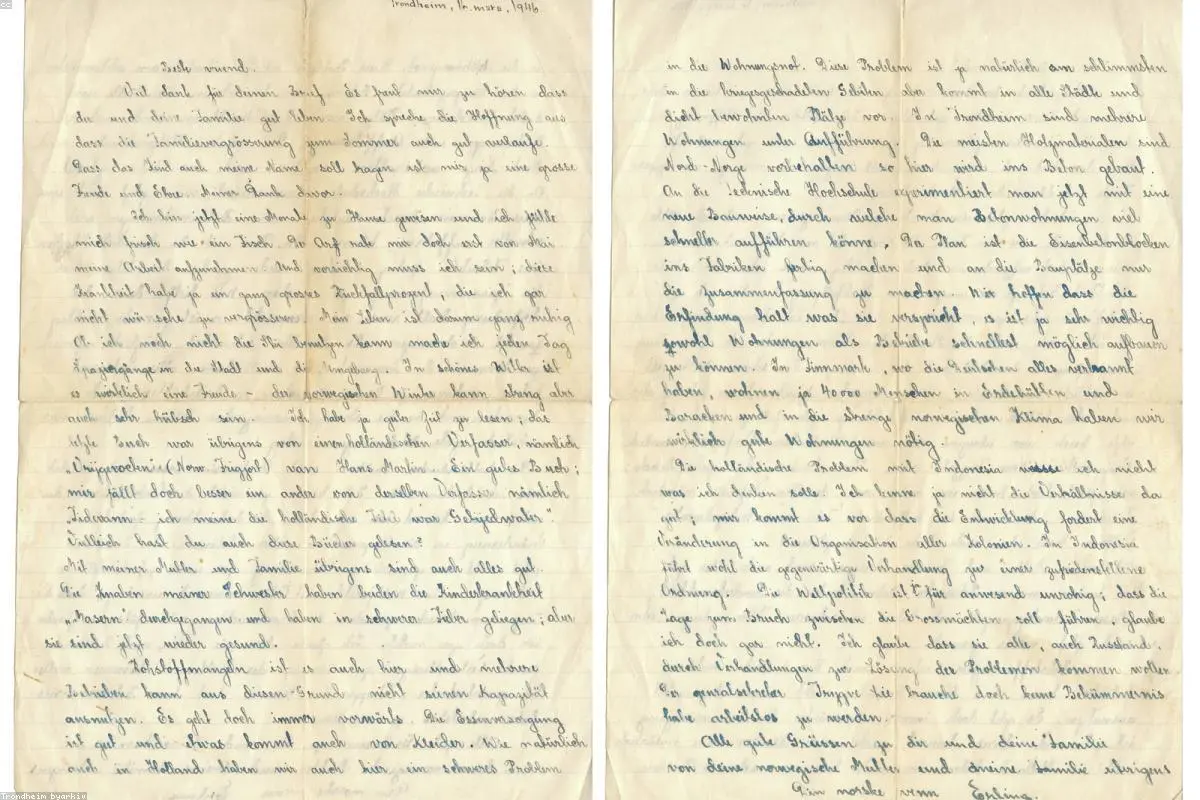 Trondheim, 16. mars, 1946
Beste vriend.
Viel dank für deinen Brief. Es freut mir zu hören dass
du und deine Familie gut leben. Ich spreche die Hoffnung aus
dass die Familievergrösserung zum Sommer auch gut verlaufe.
Dass das Kind auch meine Name soll tragen ist mir ja eine grosse
Freude und Ehre. Meiner Dank davor.
Ich bin jetzt eine Monate zu Hause gewesen und ich fühle
mich frisch wie ein Fisch. Der Arf rate mir doch erst von Mai
meine Arbeit aufzunehmen. Und vorsichtig muss ich sein; diese
Krankheit habe ja un ganz grosses Rückfallprozent, die ich gar
nicht wünsche zu vergrössern. Mein Leben ist darum ganz ruhig
Ob ich noch nicht die Ski benutzen kann mache ich jeden Tag
Spaziergänge in die Stadt und die Umgebung. In schönes Wetter ist
es wirklich eine Freude - der norwegischen Winter kann streng aber
auch sehr hübsch sein. Ich habe ja gute Zeit zu lesen; das
letzte Buch war übrigens von einen holländischen Verfasser, nämlich
„Vrijgevochten" (Norw. Frigjort) van Hans Martin. Ein gutes Buch;
mir fällt doch besser ein ander von derselben Verfasser nämlich
„Tidevann - ich meine die holländische Titel war Getijdewater".
Vielleich hast du auch diese Bücher gelesen?
Mit meiner Mutter und Familie übrigens sind auch alles gut.
Die Knaben meiner Schwester haben beiden die Kinderkrankheit
„Masern" durchgegangen und haben in schwerer Fieber gelegen; aber
sie sind jetzt wieder gesund.
Rohstoffmangeln ist es auch hier und mehrere
Betrieben kann aus diesen Grund nicht seinen Kapazität
ausnutzen. Es geht doch immer vorwärts. Die Essenversorgung
ist gut und etwas kommt auch von Kleider. Wie natürlich
auch in Holland haben wir auch hier ein schweres Problem
in die Wohnungsnot. Diese Problem ist ja natürlich am schlimmsten
in die kriegsgeschadeten Gebiten aber kommt in alle Städte und
dicht bewohnten Plätze vor. In Trondheim sind mehrere
Wohnungen unter Aufführung. Die meisten Holzmaterialen sind
Nord-Norge vorbehalten so hier wird ins Beton gebaut.
An die Technische Hochschule experimentiert man jetzt mit eine
neue Bauweise, durch welche man Betonwohnungen viel
schneller aufführen könne. Der Plan ist die Eisenbetonblocken
ins Fabriken fertig machen und an die Bauplätze nur
die Zusammenfassung zu machen. Wir hoffen dass die
Erfindung halt was sie verspricht, es ist ja sehr wichtig
sowohl Wohnungen als Betriebe schnellest möglich aufbauen
zu können. In Finnmark, wo die Deutschen alles verbrannt
haben, wohnen ja 40000 Menschen in Erdehütten und
Baracken und in die strenge norwegischen Klima haben wir
wirklich gute Wohnungen nötig.
Die holländische Problem mit Indonesia ich nicht
was ich denken solle. Ich kenne ja nicht die Verhältnisse da
gut; mir kommt es vor dass die Entwicklung fordert eine
Veränderung in die Organisation aller Kolonien. In Indonesia
führt wohl die gegenwärtige Verhandlung zur einer zufriedenstellene
Ordnung. Die Weltpolitik ist für anwesend unrohig; dass die
Lage zum Bruch zwischen die Grossmächten soll führen, glaube
ich doch gar nicht. Ich glaube dass sie alle, auch Russland,
durch Verhandlungen zur Lösung der Problemen kommen wollen
Der generalsekreter Trygve Lie brauche doch keine Bekümmernis
habe arbeitslos zu werden.
Alle gute Grüssen zu dir und deine Familie
von deine norwegische Mutter und meine Familie übrigens
Din norske venn Erling.
Trondheim byarkiv
cc